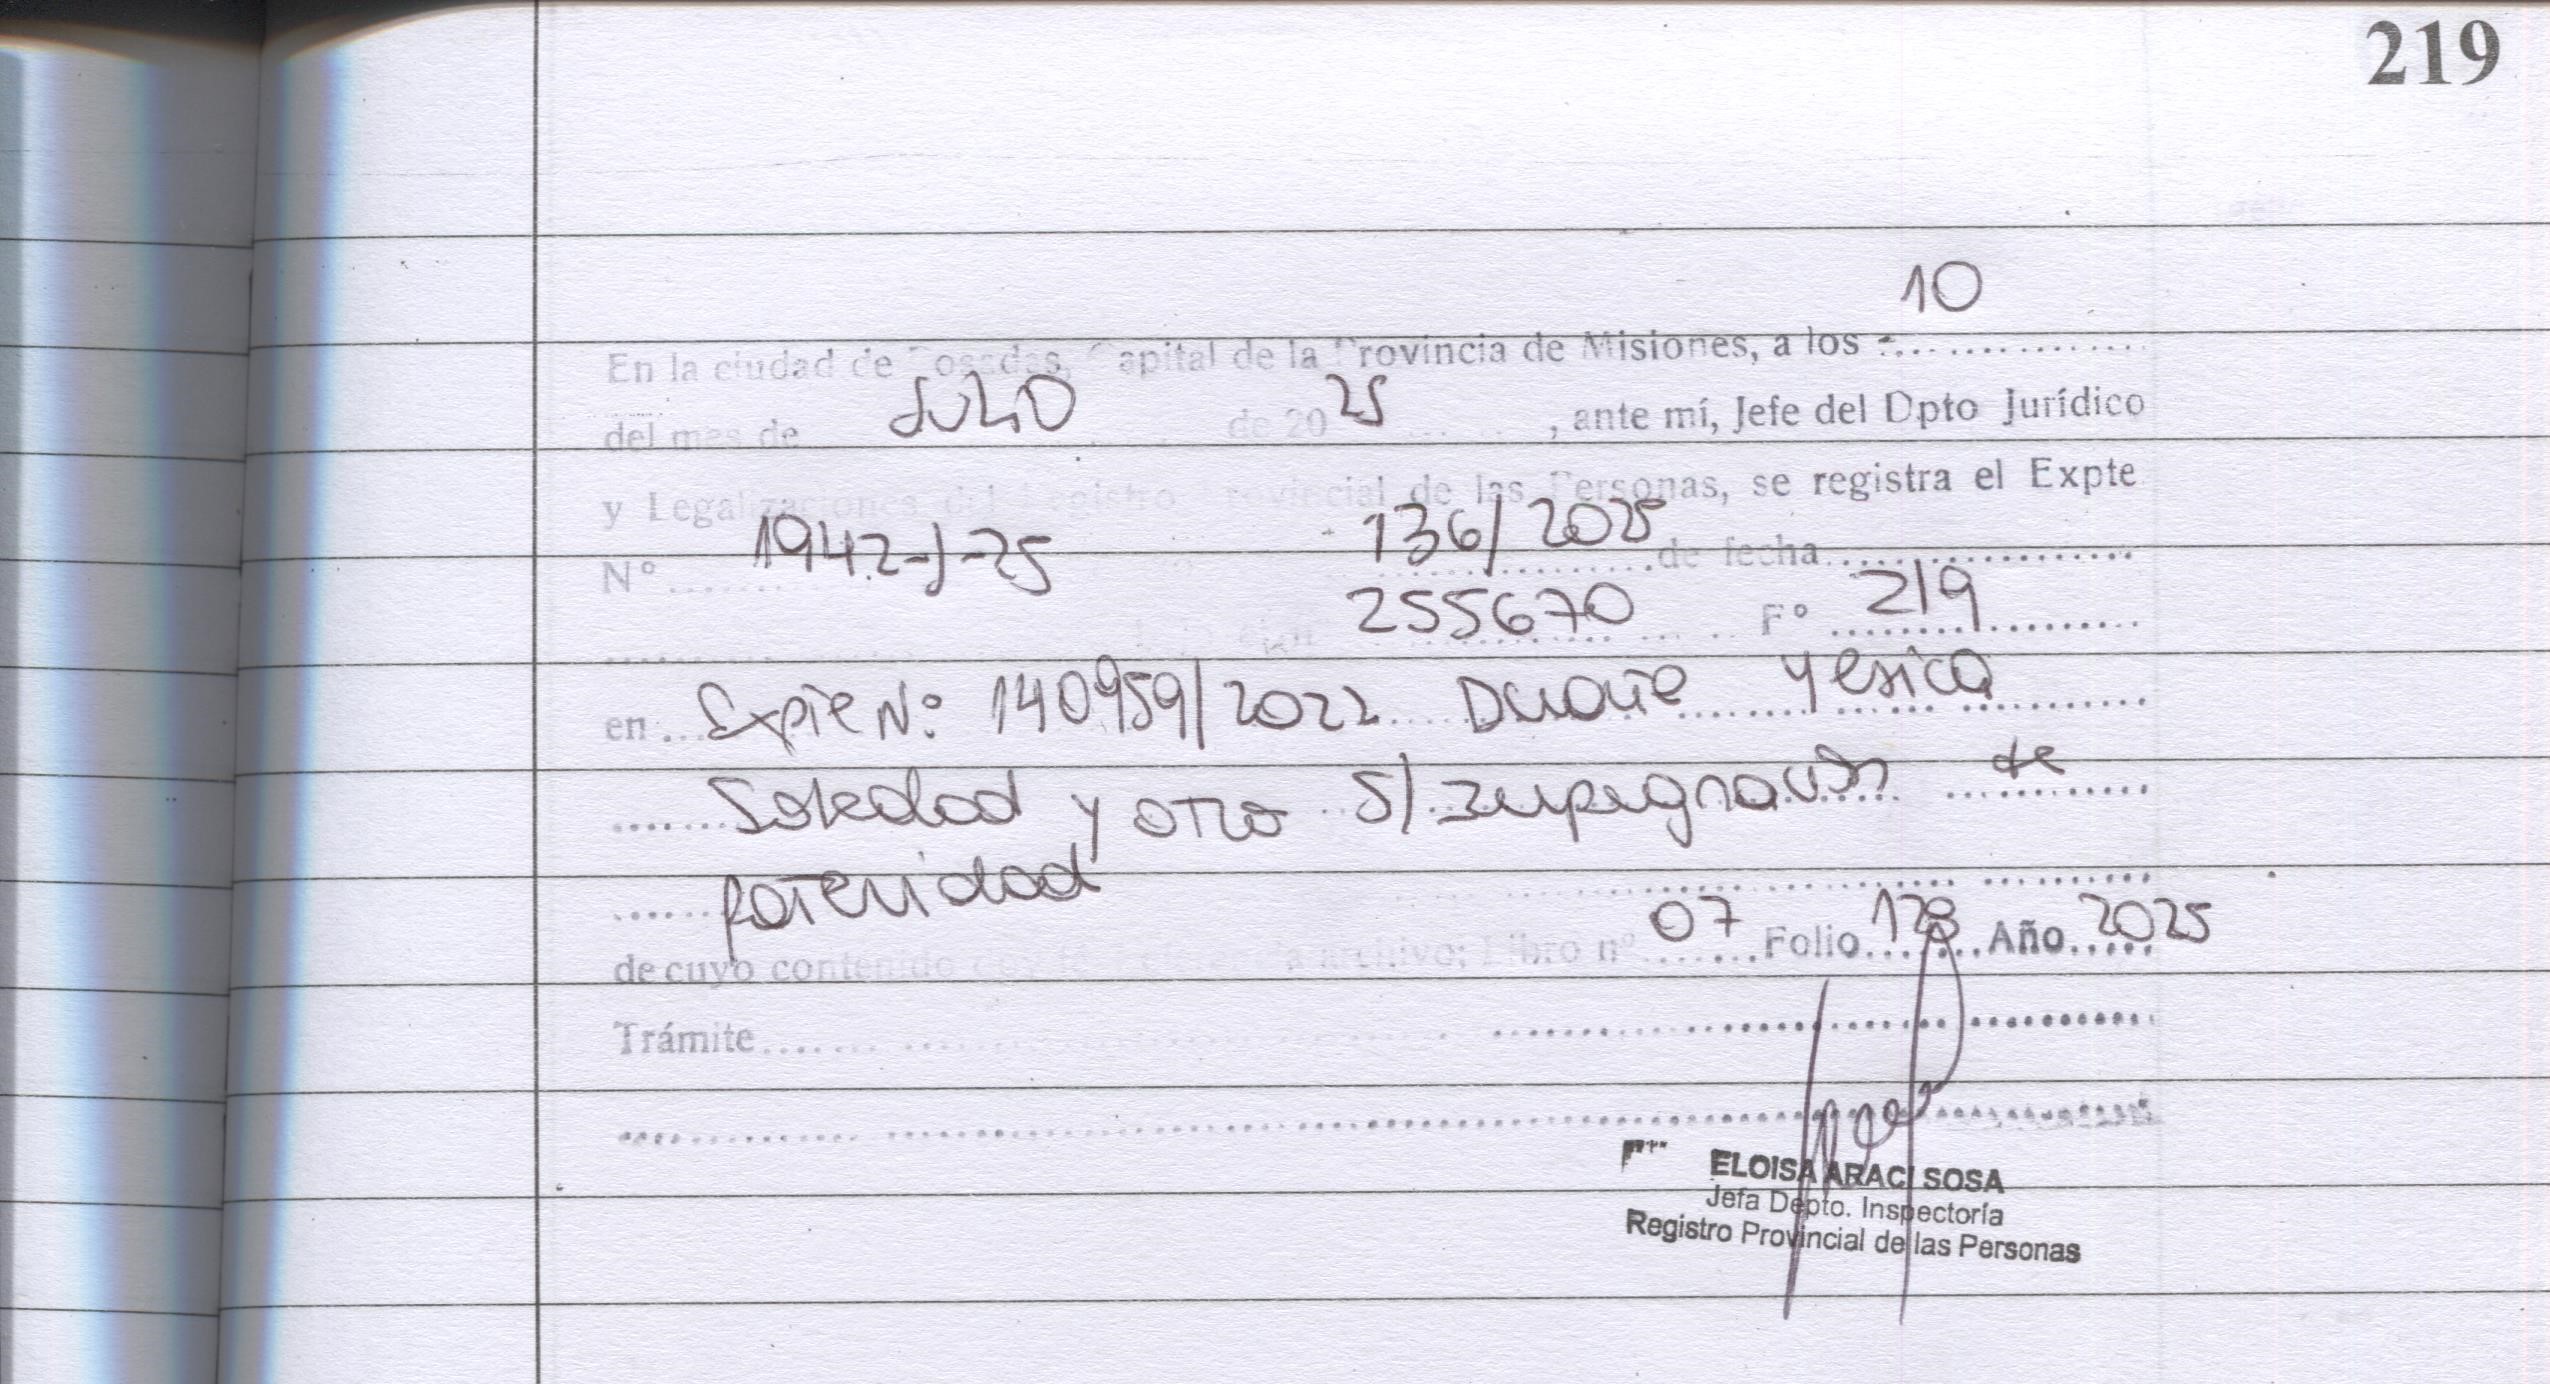 219
10
En la ciudad de Posadas, Capital de la Provincia de Misiones, a los
del mes de JULIO de 20 25, ante mí, Jefe del Dpto Jurídico
y Legalizaciones del Registro Provincial de las Personas, se registra el Expte
N° 1942-J-25 136/2025 de fecha
255670 F° 219
en Expte N: 140959/2022 Duarte Yesica
Soledad y otro S/ Impugnación de
paternidad
de cuyo contenido archivo; Libro n° 07 Folio 128 Año 2025
Trámite
ELOISA ARACI SOSA
Jefa Depto. Inspectoría
Registro Provincial de las Personas